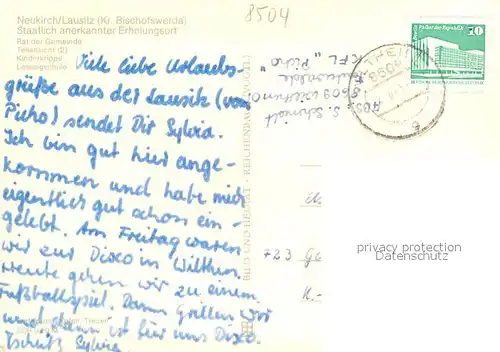 8504
Neukirch/Lausitz (Kr. Bischofswerda)
Staatlich anerkannter Erholungsort
Rat der Gemeinde
Teilansicht (2)
Kinderkrippe
Lessingschule
Viele liebe Urlaubs-
grüße aus der Lausitz (vom
Picho) sendet Dir Sylvia.
Ich bin gut hier ange-
kommen und habe mich
eigentlich gut schon ein-
gelebt. Am Freitag waren
wir zur Disco in Wilthen.
Heute gehen wir zu einem
Fußballspiel. Dann Grillen wir
und dann ist für uns Disco.
Tschüß Sylvia
BILD UND HEIMAT REICHENBACH
Abs. S. Schmidt
8609 Wilthen
"Picho"
Palast der Republik
10
DDR
723
privacy protection
Datenschutz